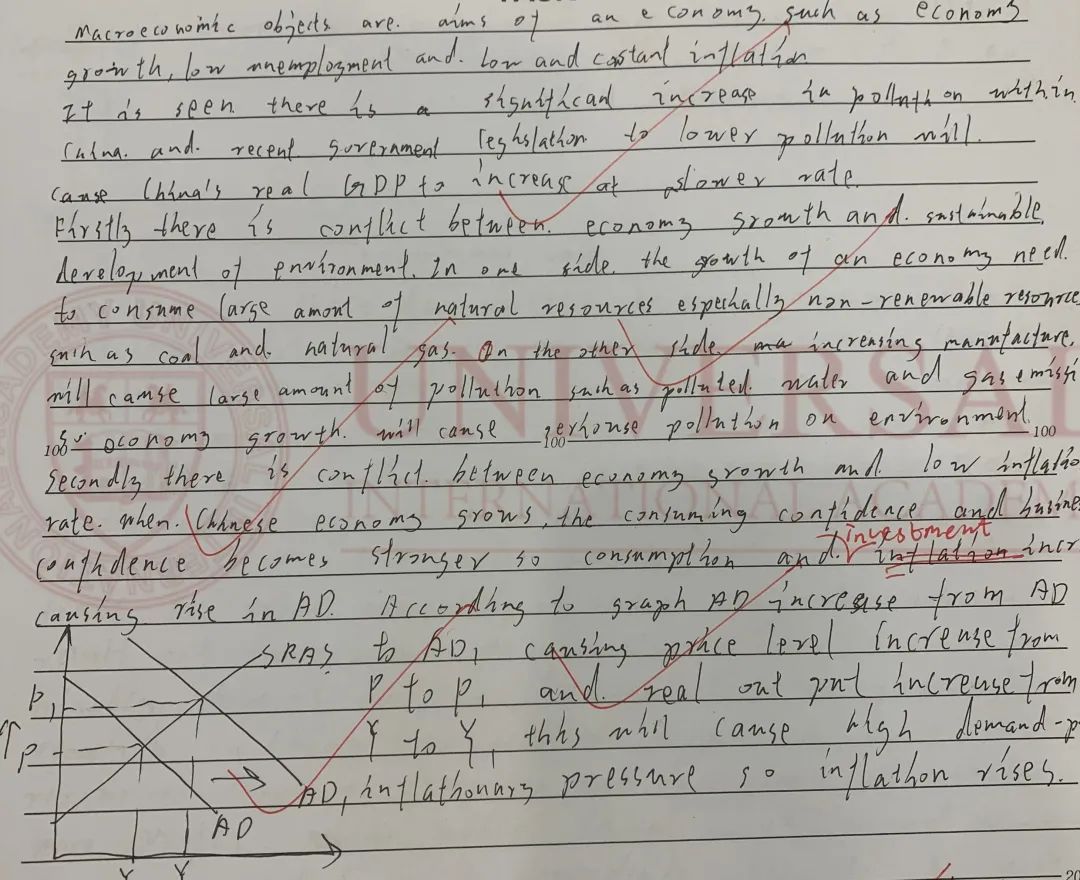 Macroeconomic objects are. aims of an economy. such as economy
growth, low unemployment and. low and costant inflation
It is seen there is a significant increase in pollution within
China. and. recent government legislation to lower pollution will.
cause China's real GDP to increase at slower rate.
Firstly there is conflict between. economy growth and. sustainable
development of environment. In one side. the growth of an economy need.
to consume large amont of natural resources especially non-renewable resource
such as coal and natural gas. In the other side increasing manufacture.
will cause large amount of pollution such as polluted. water and gas emissi
100 economy growth. will cause pollution on environment. 100
100
Secondly there is conflict. between economy growth and low inflatio
rate. when. Chinese economy grows, the consuming confidence and busine
investment
confidence becomes stronger so consumption and. inflation incr
causing rise in AD. According to graph AD increase from AD
SRAS to AD1 causing price level increase from
P1 P to P1 and. real out put increase from
P Y to Y1, this will cause high demand-p
AD1 inflationary pressure so inflation rises.
AD
Y Y
20
UNIVERSAL
INTERNATIONAL ACADEM